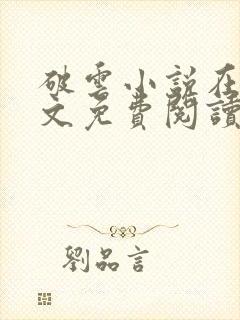 破雲小説在
文免費閱讀
劉品言